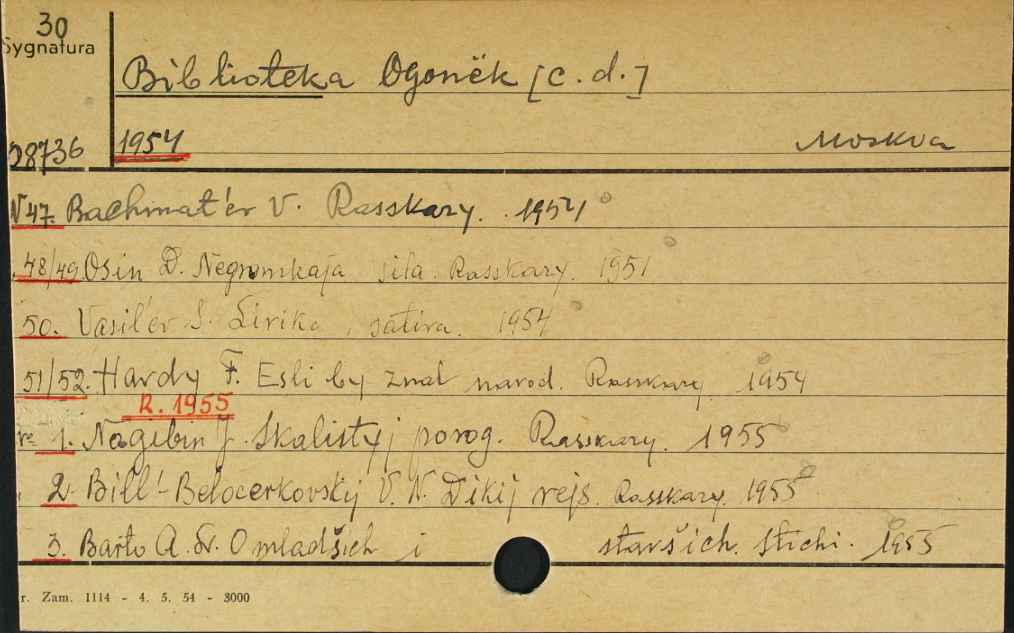 30
Sygnatura
Biblioteka Ogonëk [c.d.]
28736 1954 Moskva
N 47. Bachmat'ev V. Rasskazy. 1954
48/49 Osin D. Negromkaja siła. Rasskazy. 1951
50. Vasil'ev S. Lirika, satira. 1954
51/52. Hardy F. Esli by znal narod. Rasskazy. 1954
R. 1955
1. Nagibin J. Skalistyj porog. Rasskazy. 1955
2. Bill'-Belocerkovskij V. N. Dikij rejs. Rasskazy. 1955
3. Barto A. O mladšich i staršich. Stichi. 1955
r. Zam. 1114 - 4. 5. 54 - 3000